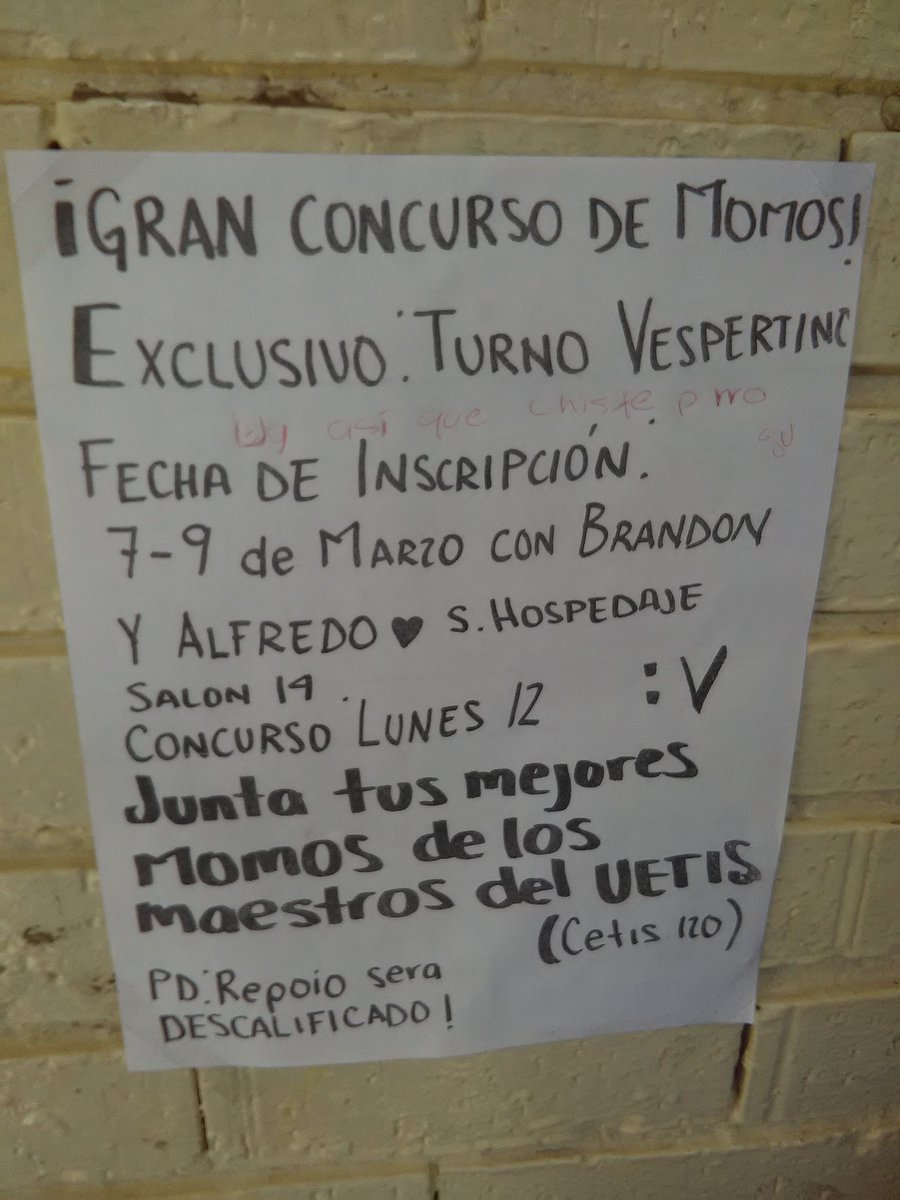 ¡GRAN CONCURSO DE MOMOS!
EXCLUSIVO: TURNO VESPERTINO
así que chiste prro
FECHA DE INSCRIPCIÓN:
7-9 de MARZO CON BRANDON
Y ALFREDO ♥ S. HOSPEDAJE
SALON 14.
CONCURSO LUNES 12 :V
Junta tus mejores
Momos de los
maestros del UETIS
(Cetis 120)
PD: Repoio sera
DESCALIFICADO!